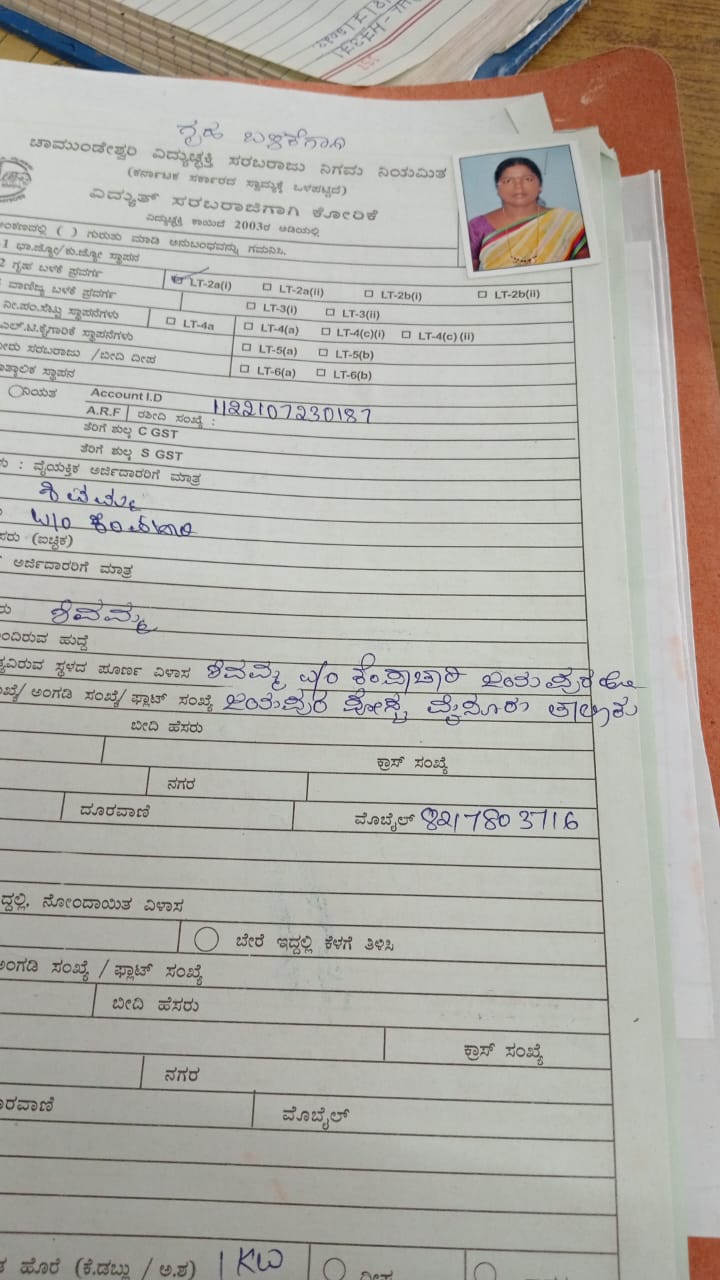 ಗೃಹ ಬಳಕೆಗಾಗಿ
ಚಾಮುಂಡೇಶ್ವರಿ ವಿದ್ಯುಚ್ಛಕ್ತಿ ಸರಬರಾಜು ನಿಗಮ ನಿಯಮಿತ
(ಕರ್ನಾಟಕ ಸರ್ಕಾರದ ಸ್ವಾಮ್ಯಕ್ಕೆ ಒಳಪಟ್ಟಿದೆ)
ವಿದ್ಯುತ್ ಸರಬರಾಜಿಗಾಗಿ ಕೋರಿಕೆ
ವಿದ್ಯುಚ್ಛಕ್ತಿ ಕಾಯಿದೆ 2003ರ ಅಡಿಯಲ್ಲಿ
ಅಂಕಣದಲ್ಲಿ ( ) ಗುರುತು ಮಾಡಿ ಅನುಬಂಧವನ್ನು ಗಮನಿಸಿ.
1 ಭಾ.ಜ್ಯೋ/ಕು.ಜ್ಯೋ ಸ್ಥಾಪನ
2 ಗೃಹ ಬಳಕೆ ಪ್ರವರ್ಗ LT-2a(i) LT-2a(ii) LT-2b(i) LT-2b(ii)
ವಾಣಿಜ್ಯ ಬಳಕೆ ಪ್ರವರ್ಗ LT-3(i) LT-3(ii)
ನೀ.ಪಂ.ಸೆಟ್ಟು ಸ್ಥಾಪನೆಗಳು LT-4a LT-4(a) LT-4(c)(i) LT-4(c)(ii)
ಎಲ್.ಟಿ.ಕೈಗಾರಿಕೆ ಸ್ಥಾಪನೆಗಳು LT-5(a) LT-5(b)
ಸರಬರಾಜು /ಬೀದಿ ದೀಪ LT-6(a) LT-6(b)
ಸ್ಥಾಪನ
ನಿಯತ Account I.D
A.R.F ರಶೀದಿ ಸಂಖ್ಯೆ : 1122107230187
ತೆರಿಗೆ ಶುಲ್ಕ C GST
ತೆರಿಗೆ ಶುಲ್ಕ S GST
: ವೈಯಕ್ತಿಕ ಅರ್ಜಿದಾರರಿಗೆ ಮಾತ್ರ
ಶಿವಮ್ಮ
W/O ಕೆಂಪಾಚಾರಿ
(ಐಚ್ಛಿಕ)
ಅರ್ಜಿದಾರರಿಗೆ ಮಾತ್ರ
ಶಿವಮ್ಮ
ಹುದ್ದೆ
ಸ್ಥಳದ ಪೂರ್ಣ ವಿಳಾಸ ಶಿವಮ್ಮ W/O ಕೆಂಪಾಚಾರಿ ಜಯಪುರ ಹೋ
ಅಂಗಡಿ ಸಂಖ್ಯೆ/ ಫ್ಲಾಟ್ ಸಂಖ್ಯೆ ಜಯಪುರ ಪೋಸ್ಟ್ ಮೈಸೂರು ತಾಲ್ಲೂಕು
ಬೀದಿ ಹೆಸರು
ಕ್ರಾಸ್ ಸಂಖ್ಯೆ
ನಗರ
ದೂರವಾಣಿ ಮೊಬೈಲ್ 8217803716
ನೋಂದಾಯಿತ ವಿಳಾಸ
ಬೇರೆ ಇದ್ದಲ್ಲಿ ಕೆಳಗೆ ತಿಳಿಸಿ
ಅಂಗಡಿ ಸಂಖ್ಯೆ / ಫ್ಲಾಟ್ ಸಂಖ್ಯೆ
ಬೀದಿ ಹೆಸರು
ಕ್ರಾಸ್ ಸಂಖ್ಯೆ
ನಗರ
ಮೊಬೈಲ್
ಹೊರೆ (ಕೆ.ಡಬ್ಲು / ಅ.ಶ) 1 KW